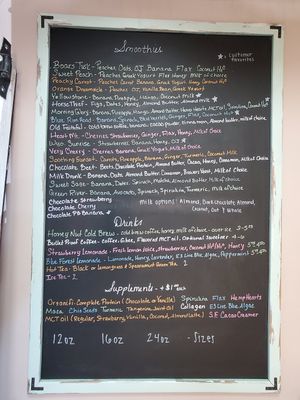 Smoothies
* Customer Favorites
Boars Tusk - Peaches, Oats, OJ, Banana, Flax, Coconut H*
Sweet Peach - Peaches, Greek Yogurt, Flax, Honey, Milk of choice
Peachy Carrot - Peaches, Carrot, Banana, Greek Yogurt, Honey, Coconut H*
Orange Dreamsicle - Peaches, OJ, Vanilla Bean, Greek Yogurt
Yellowstone - Banana, Pineapple, Mango, Coconut milk
Horse Thief - Figs, Dates, Honey, Almond Butter, Almond milk
Morning Glory - Banana, Pineapple, Mango, Almond Butter, Hemp Hearts,
Blue Rim Road - Banana, Spinach, Greek Yogurt, Ginger, Flax, Coconut
Old Faithful - cold brew coffee, banana, Cinnamon, Almond butter, milk of choice
Heart Mtn - Cherries, Strawberries, Ginger, Flax, Honey, Milk of Choice
Wyo Sunrise - Strawberries, Banana, Honey, OJ
Very Cherry - Cherries, Banana, Greek Yogurt, Milk of choice
Soothing Sunset - Carrots, Pineapple, Banana, Ginger, Turmeric, Coconut Milk
Chocolate Beet - Beets, Chocolate Protein, Almond Butter, Cacao, Honey, Cinnamon, Milk of choice
Milk Drunk - Banana, Oats, Almond Butter, Cinnamon, Honey, Milk of choice
Sweet Sage - Banana, Dates, Spinach, Almond Butter, Milk of Choice
Green River - Banana, Avocado, Spinach, Spirulina, Turmeric, milk of choice
Chocolate Strawberry
Chocolate Cherry
Chocolate PB Banana
Milk options: Almond, Dark Chocolate Almond,
Coconut, Oat & Whole
Drinks
Honey Nut Cold Brew - cold brew coffee, honey, milk of choice - over ice
Bullet Proof Coffee - Coffee, Ghee, Flavored MCT oil
Strawberry Lemonade - Fresh lemon juice, Strawberries, Coconut H*, Honey
Blue Forest Lemonade - Lemonade, Honey, Lavender, E3 Live Blue Algae, Peppermint
Hot Tea - Black or Lemongrass & Spearmint Green Tea
Ice Tea - 2
Supplements - + $1 each
Organifi Complete Protein (Chocolate or Vanilla) Spirulina Flax Hemp Hearts
Maca Chia Seeds Turmeric Collagen E3 Live Blue Algae
MCT Oil (Regular, Strawberry, Vanilla, Coconut, Almond Latte) S.F. Cacao Creamer
12oz 16oz 24oz - Sizes